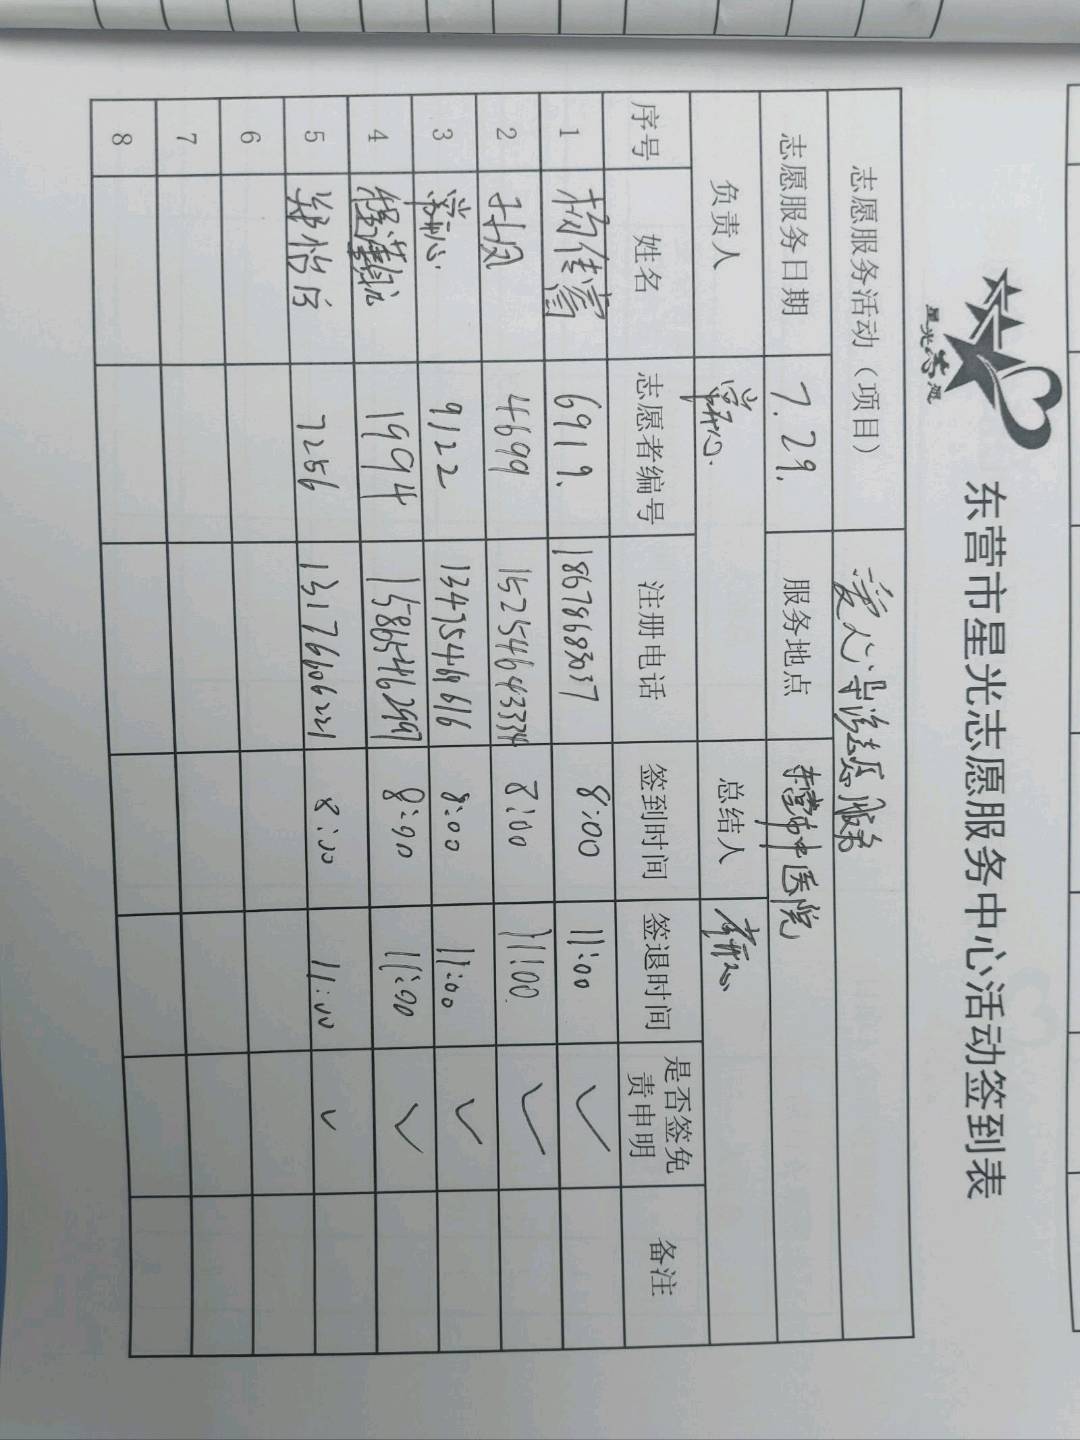 星光梦想
东营市星光志愿服务中心活动签到表
志愿服务活动（项目） 爱心导诊志愿服务
志愿服务日期 7.29. 服务地点 东营市中医院
负责人 总结人
序号 姓名 志愿者编号 注册电话 签到时间 签退时间 是否签免责申明 备注
1 6919. 18678683037 8:00 11:00 ✓
2 4699 15254643334 8:00 11:00 ✓
3 9122 13475469616 8:00 11:00 ✓
4 1994 15865462997 8:00 11:00 ✓
5 郑怡 7256 13176606221 8:00 11:00 ✓
6
7
8